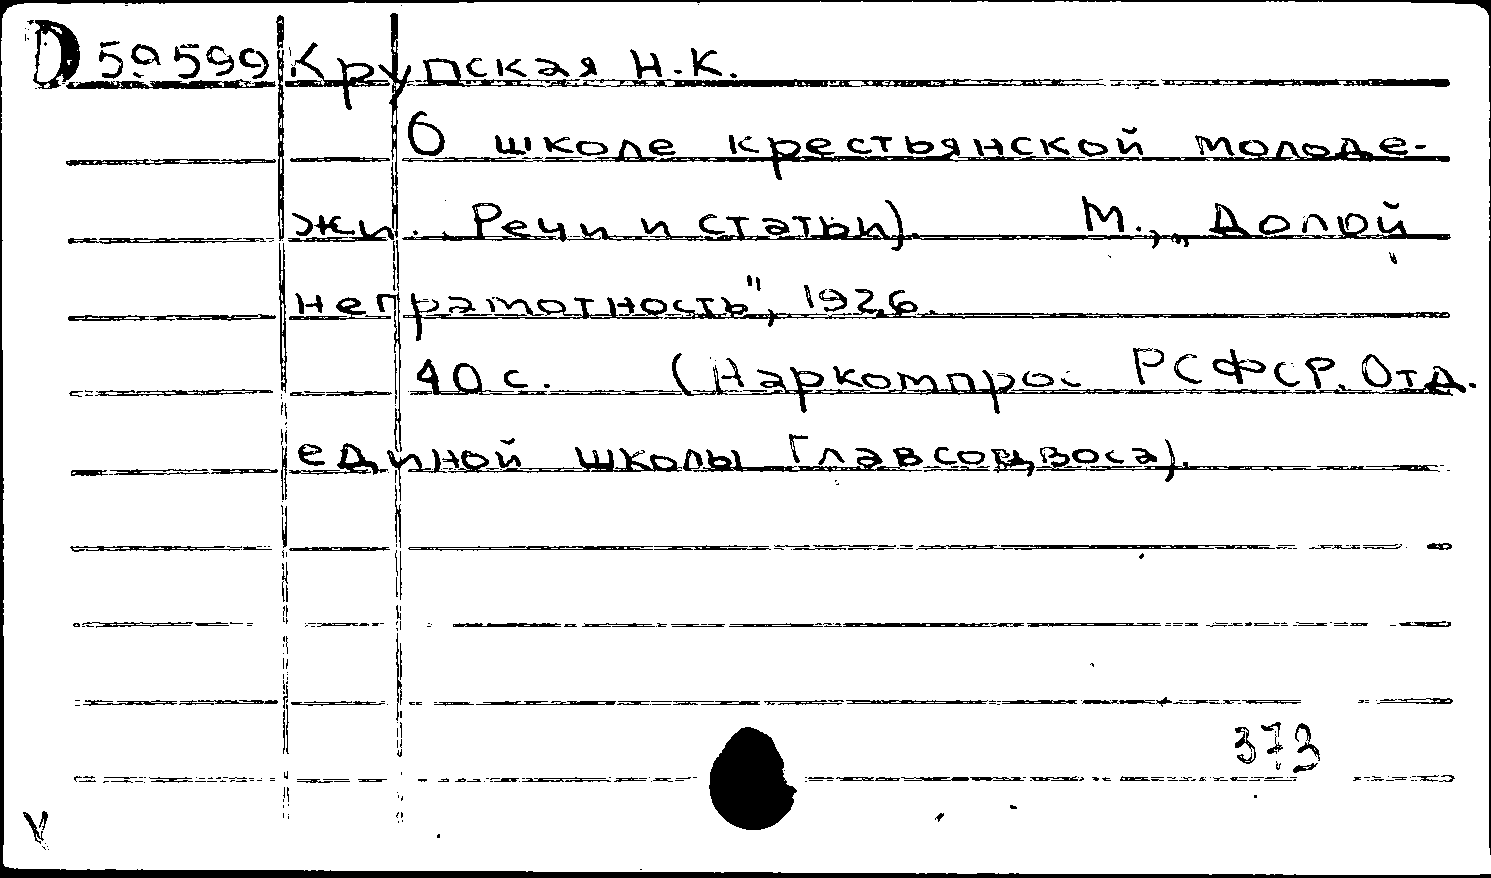 D 59599 Крупская Н.К.
О школе крестьянской молоде-
жи. Речи и статьи). М., „Долой
неграмотность", 1926.
40 с. (Наркомпрос РСФСР. Отд.
единой школы Главсоцвоса).
373
V